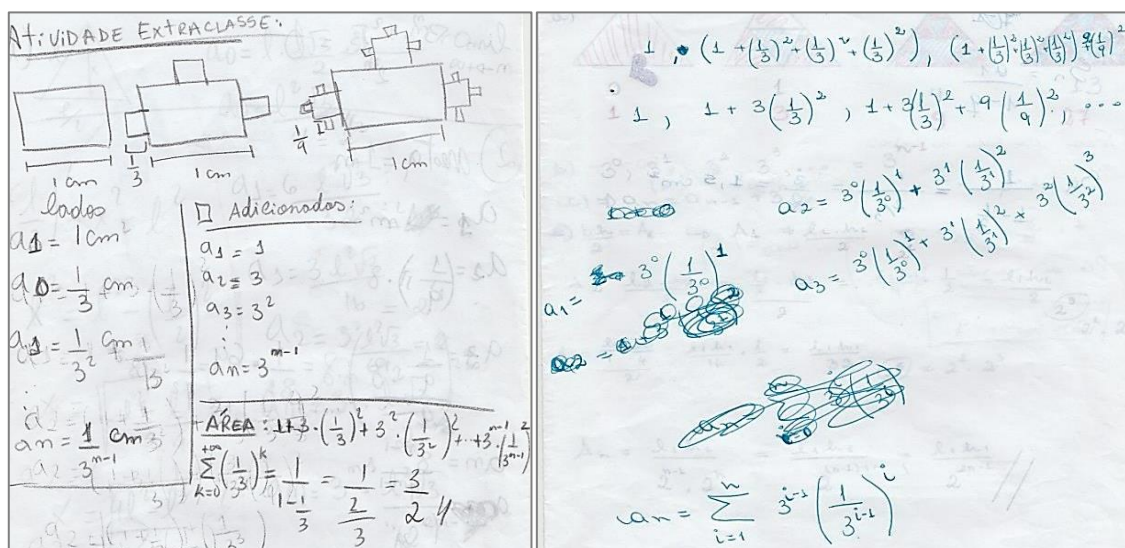 ATIVIDADE EXTRACLASSE:
1/3
1/9
1 cm
1 cm
1 cm
lados
a1 = 1 cm²
a0 = 1/3 cm
a1 = 1/3² cm
⋮
an = 1/3^(n-1) cm
□ Adicionados:
a1 = 1
a2 = 3
a3 = 3²
⋮
an = 3^(n-1)
ÁREA: 1+3·(1/3)² + 3²·(1/3²)² + ··· + 3^(n-1)·(1/3^(n-1))²
∑_(k=0)^(+∞) (1/3)^k = 1/(1-1/3) = 1/(2/3) = 3/2
1, (1 + (1/3)² + (1/3)² + (1/3)²), (1 + (1/3)² + (1/3)² + (1/3)²) + 9(1/9)²
1, 1 + 3(1/3)², 1 + 3(1/3)² + 9(1/9)², ...
a2 = 3⁰(1/3⁰)¹ + 3¹(1/3¹)²
a1 = 3⁰(1/3⁰)¹
a3 = 3⁰(1/3⁰)¹ + 3¹(1/3¹)² + 3²(1/3²)³
an = ∑_(i=1)^(n) 3^(i-1) (1/3^(i-1))^i